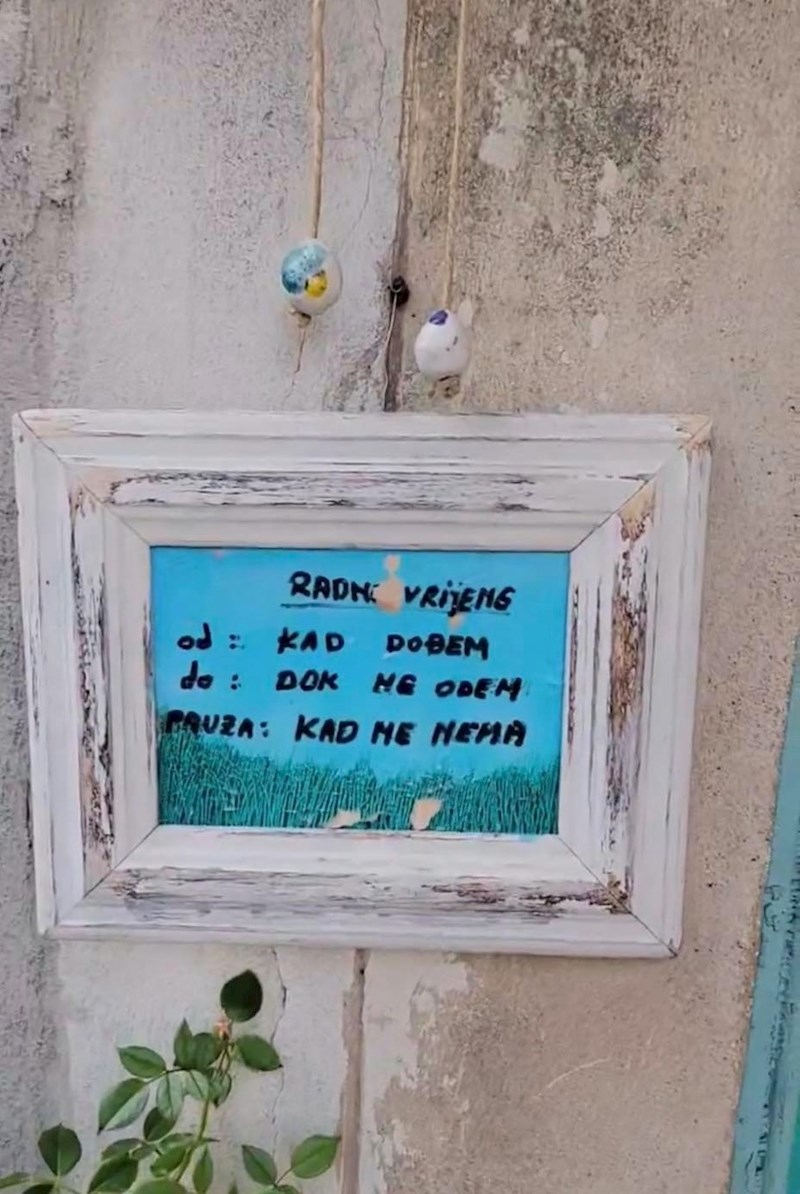 RADNO VRIJEME
od : KAD DOĐEM
do : DOK NE ODEM
PAUZA: KAD ME NEMA